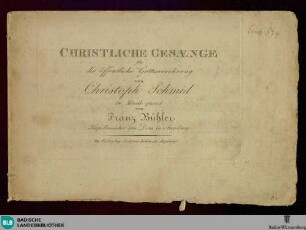 CHRISTLICHE GESÆNGE
für
die öffentliche Gottesverehrung
von
Christoph Schmid
in Musik gesetzt
von
Franz Bühler
Kapellmeister am Dom in Augsburg
BLB
BADISCHE
LANDESBIBLIOTHEK
Baden-Württemberg